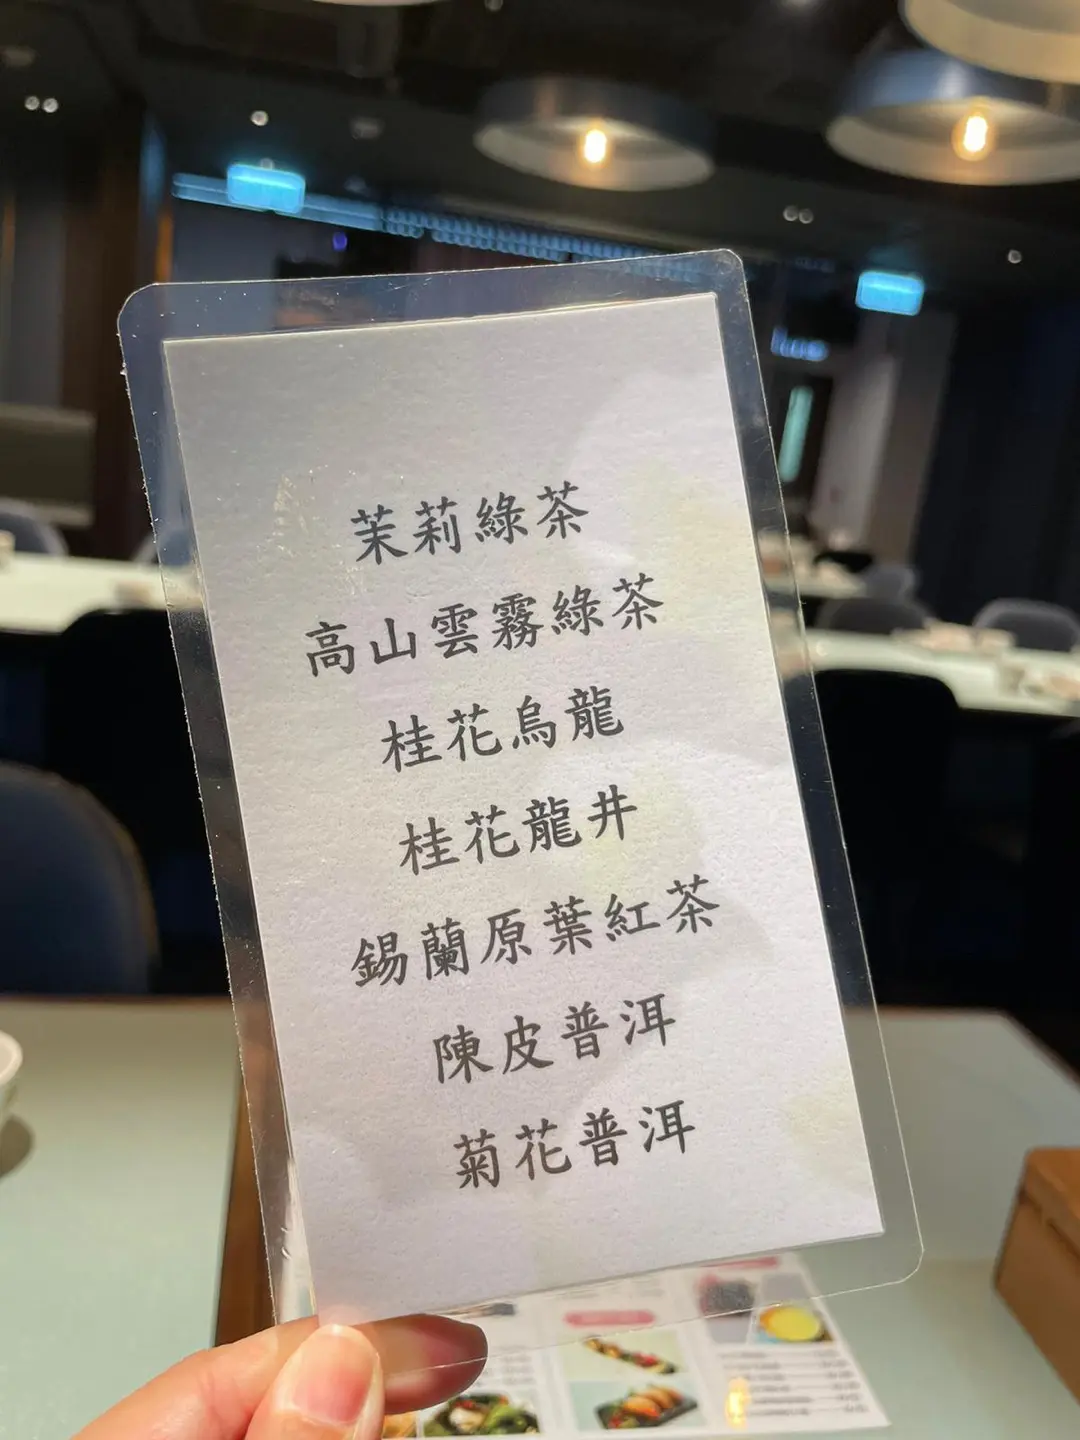 茉莉綠茶
高山雲霧綠茶
桂花烏龍
桂花龍井
錫蘭原葉紅茶
陳皮普洱
菊花普洱